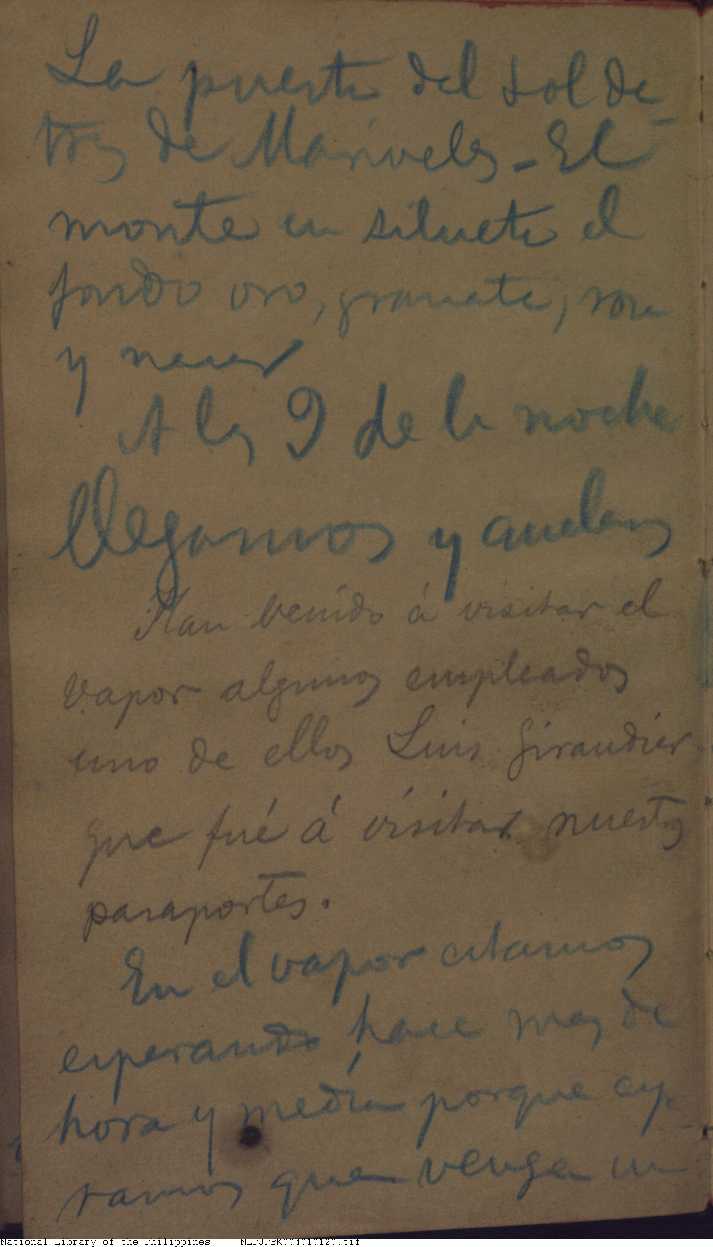 La puesta del sol de-
tras de Mariveles - El
monte en silueta el
fondo oro, granate, rosa
y
A las 9 de la noche
llegamos y anclamos
Han venido á visitar el
vapor algunos empleados
uno de ellos Luis Giraudier
que fué á visitar nuestros
pasaportes.
En el vapor estamos
esperando hace mas de
hora y media porque espe-
ramos que venga un
National Library of the Philippines